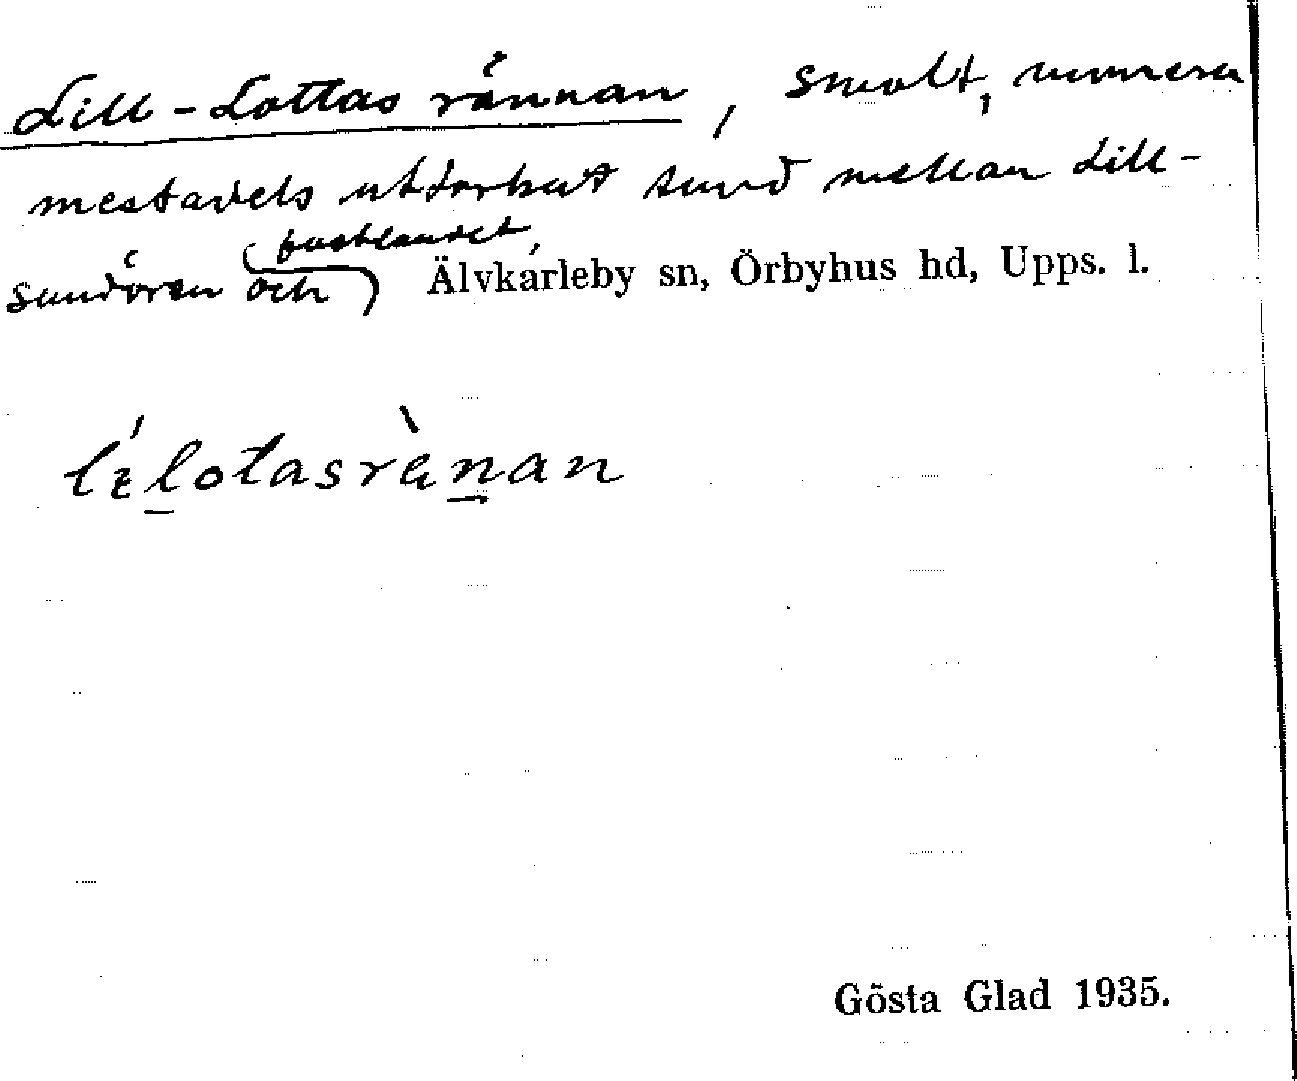 Lill-Lottas rännan, smalt, numera
mestadels uttorkat sund mellan Lill-
fastlandet,
sundören och Älvkarleby sn, Örbyhus hd, Upps. l.
Gösta Glad 1935.